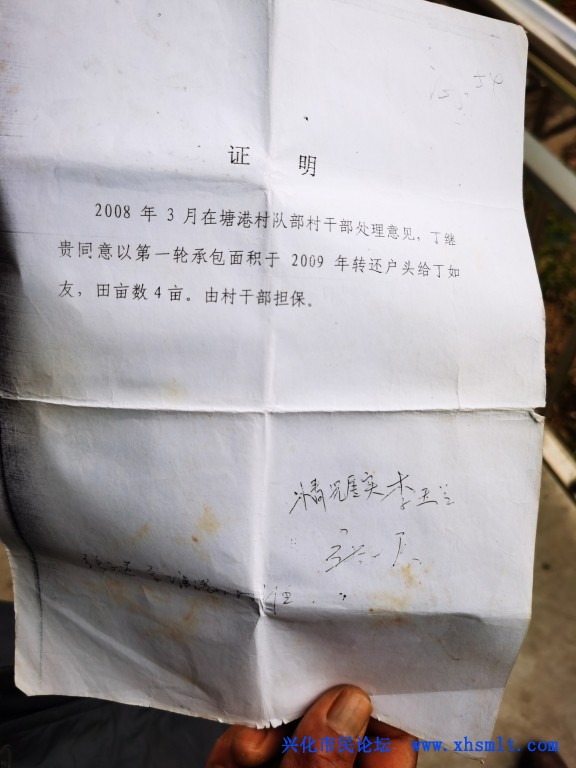 证 明
2008 年 3 月在塘港村队部村干部处理意见，丁继
贵同意以第一轮承包面积于 2009 年转还户头给丁如
友，田亩数 4 亩。由村干部担保。
情况属实李
兴化市民论坛 www.xhsmlt.com